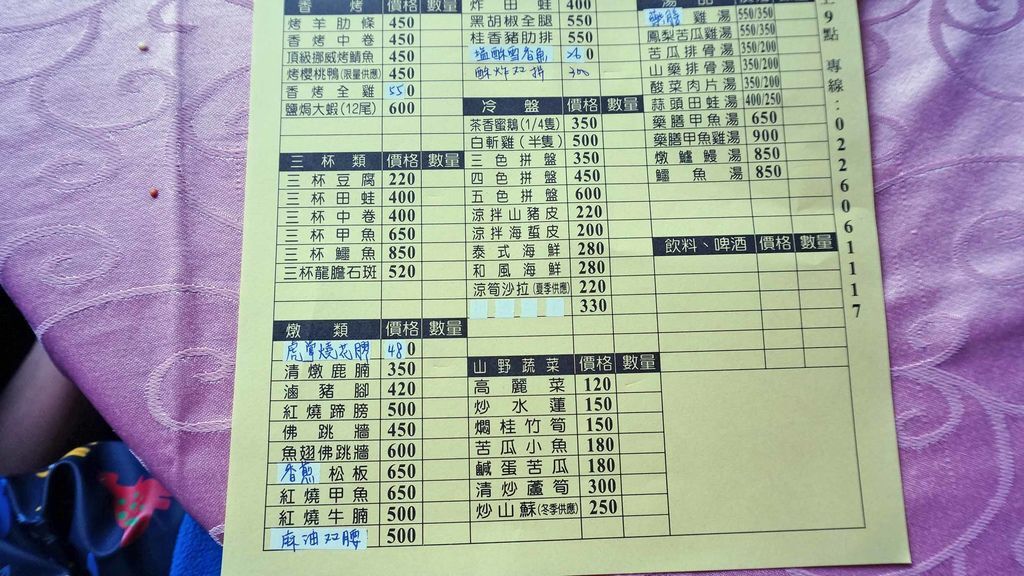 香烤 價格 數量
烤羊肋條 450
香烤中卷 450
頂級挪威烤鯖魚 450
烤櫻桃鴨(限量供應) 450
香烤全雞 550
鹽焗大蝦(12尾) 600
三杯類 價格 數量
三杯豆腐 220
三杯田蛙 400
三杯中卷 400
三杯甲魚 650
三杯鱷魚 850
三杯龍膽石斑 520
燉類 價格 數量
虎掌燒花膠 480
清燉鹿腩 350
滷豬腳 420
紅燒蹄膀 500
佛跳牆 450
魚翅佛跳牆 600
香煎松板 650
紅燒甲魚 650
紅燒牛腩 500
麻油双腰 500
炸田蛙 400
黑胡椒全腿 550
桂香豬肋排 550
塩酥雪香魚
酥炸双拼 300
冷盤 價格 數量
茶香蜜鵝(1/4隻) 350
白斬雞(半隻) 500
三色拼盤 350
四色拼盤 450
五色拼盤 600
涼拌山豬皮 220
涼拌海蜇皮 200
泰式海鮮 280
和風海鮮 280
涼筍沙拉(夏季供應) 220
330
山野蔬菜 價格 數量
高麗菜 120
炒水蓮 150
燜桂竹筍 150
苦瓜小魚 180
鹹蛋苦瓜 180
清炒蘆筍 300
炒山蘇(冬季供應) 250
湯品
藥膳雞湯 550/350
鳳梨苦瓜雞湯 550/350
苦瓜排骨湯 350/200
山藥排骨湯 350/200
酸菜肉片湯 350/200
蒜頭田蛙湯 400/250
藥膳甲魚湯 650
藥膳甲魚雞湯 900
燉鱸鰻湯 850
鱷魚湯 850
飲料、啤酒 價格 數量
上9點 專線:0226061117